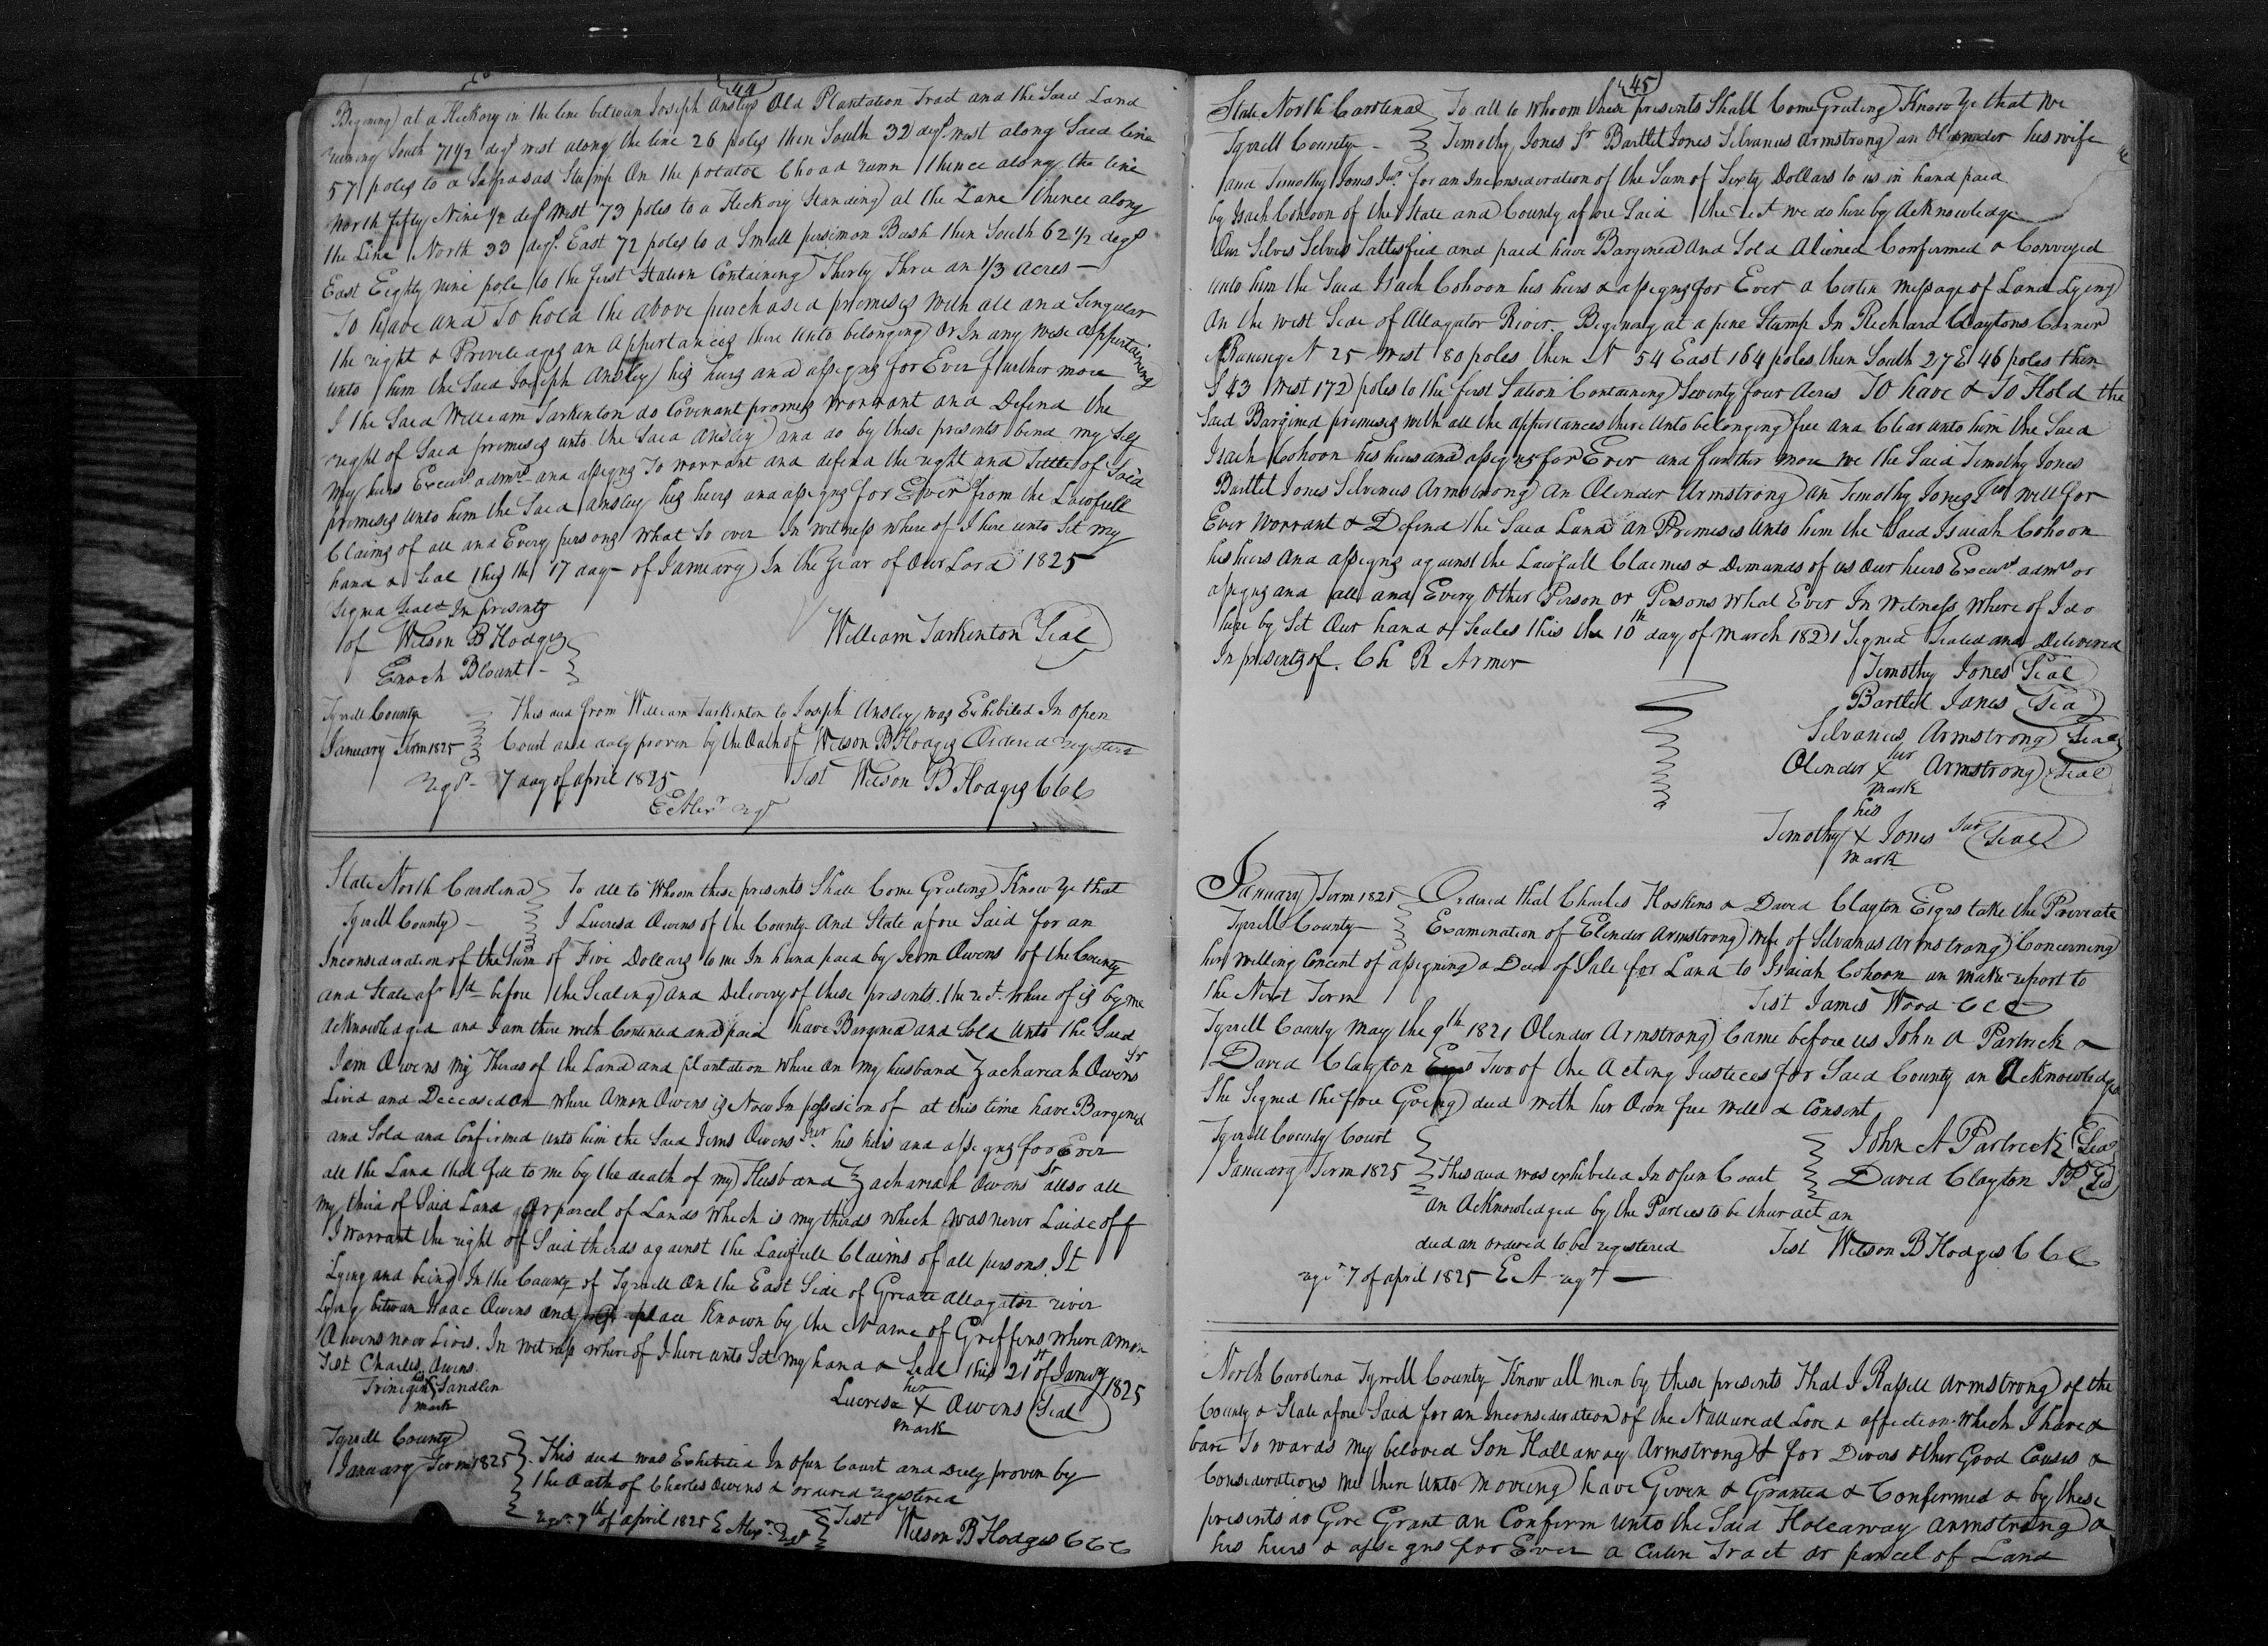 44
Begining at a Hickory in the line between Joseph Ansleys Old Plantation Tract and the Said Land
runing South 71 1/2 degs west along the line 26 poles then South 32 degs west along Said line
57 poles to a Sasrasas Stump On the potatoe Choad runn thence along the line
North fifty Nine 1/2 degs West 73 poles to a Hickory Standing at the Lane thence along
the Line North 33 degs East 72 poles to a Small persimon Bush then South 62 1/2 degs
East Eighty nine pole to the first Station Containing Thirty Three an 1/3 acres —
To have and To hold the above purchased premises with all and Singular
the right & Priveleages an Appertances there unto belonging Or In any wise appertaining
unto him the Said Joseph Ansley his heirs and assigns for Ever further more
I the Said William Tarkenton do Covenant promess worrant and Defend the
right of Said premises unto the Said Ansley and do by these presents bind my Self
my heirs Execurs admrs and assigns To worrant and defend the right and Tittle of Said
premises unto him the Said Ansley his heirs and assigns for Ever from the Lawfull
Claims of all and Every persons What So ever In witness where of I here unto Set my
hand & Seal this the 17 day of January In the Year of Our Lord 1825
Signd Seald In presents
of Wilson B Hodges
William Tarkinton Seal
Enoch Blount
Tyrrell County
This deed from William Tarkinton to Joseph Ansley was Exhibited In open
January Term 1825
Court and duly proven by the Oath of Wilson B Hodges Ordered registerd
regd 7 day of april 1825
Test Wilson B Hodges CCC
State North Carolina
To all to Whom these presents Shall Come Greeting Know Ye that
Tyrrell County
I Lucresa Owens of the County And State afore Said for an
Inconsideration of the Sum of Five Dollars to me In hand paid by Iem Owens of the County
and State afr sd before the Sealing and Delivery of these presents the rect where of is by me
acknowledged and I am there with Contented and paid have Bargened and Sold unto the Said
Iem Owens my Theras of the Land and plantation where on my husband Zachareah Owens Sr
Lived and Deceased on where Amon Owens is Now In possesion of at this time have Bargened
and Sold and Confirmed unto him the Said Iems Owens Jur his heirs and assigns for Ever
all the Land that fell to me by the death of my Husband Zachareah Owens Sr allso all
my third of Said Land or parcel of Lands which is my thirds which was never Laide off
I worrant the right of Said therds against the Lawfull Claims of all persons It
Lying and being In the County of Tyrrell On the East Side of Greate allagator river
Lying betwen Isaac Owens and place Known by the Name of Greffens where Amon
Owens now Lives. In witness where of I here unto Set my hand & Seal this 21st of January 1825
Test Charles Owens
Sandlen
mark
Lucresa her X mark Owens Seal
Tyrrell County
January Term 1825
This deed was Exhibited In Open Court and Duly proven by
the Oath of Charles Owens & ordered registered
regd 7th of april 1825
Test Wilson B Hodges CCC
45
State North Carolina
To all to Whoom these presents Shall Come Greeting Know Ye that We
Tyrrell County
Timothy Jones Sr Bartlet Jones Silvanus Armstrong an Olender his wife
and Timothy Jones Jur for an Inconsideration of the Sum of Sixty Dollars to us in hand paid
by Isach Cohoon of the State and County afore Said the rect we do here by Acknowledge
Our Selves Selves Sattesfied and paid have Bargined and Sold Aliened Confermed & Conveyed
unto him the Said Isach Cohoon his heirs & assigns for Ever a Certin Message of Land Lying
On the west Side of Allagator River. Begining at a pine Stamp In Richard Claytons Corner
Runing N 25 West 80 poles then N 54 East 164 poles then South 27 E 46 poles then
S 43 West 172 poles to the first Sation Containing Seventy four Acres To have & To Hold the
Said Bargined premises with all the appertances there unto belonging free and Clear unto him the Said
Isach Cohoon his heirs and assigns for Ever and further more we the Said Timothy Jones
Bartlet Jones Silvenus Armstrong An Olender Armstrong an Timothy Jones Jur will for
Ever worrant & Defend the Said Land an Premises unto him the Said Isaiah Cohoon
his heirs and assigns against the Lawfull Claimes & Demands of us Our heirs Execurs admrs or
assigns and all and Every Other Person or Persons what Ever In Witness where of I do
here by Set Our hand & Seales this the 10th day of March 1821 Signed Sealed and Delivered
In presents of. Ch R Armor
Timothy Jones Seal
Bartlet Jones Sea
Silvanus Armstrong Seal
Olender her X mark Armstrong Seal
Timothy his X mark Jones Jur Seal
January Term 1821
Ordered that Charles Hoskins & David Clayton Esqrs take the Preveate
Tyrrell County
Examination of Elender Armstrong wife of Silvanas Armstrong Concerning
her willing Concent of assigning a Deed of Sale for Land to Isaiah Cohoon an make report to
the Next Term
Test James Wood CCC
Tyrrell County May the 9th 1821 Olinder Armstrong Came before us John A Partrick &
David Clayton Esqrs Two of the Acting Justices for Said County an Acknowledged
She Signed the fore Going deed with her Own free will & Consent
John A Partreck Seal
Tyrrell County Court
January Term 1825
This deed was exhibited In Open Court
David Clayton JP
an Acknowledged by the Parties to be their act an
deed an ordered to be registered
Test Wilson B Hodges CCC
regd 7 of april 1825 E A regr
North Carolina Tyrrell County Know all men by these presents That I Russell Armstrong of the
County & State afore Said for an Inconsideration of the Nattureal Love & affection which I have &
bare To wards my beloved Son Hallaway Armstrong & for Divers other Good Causes &
Considerations me there unto moveing have Given & Granted & Confermed & by these
presents do Give Grant an Confirm unto the Said Holeaway Armstrong &
his heirs & assigns for Ever a Certen Tract or parcel of Land